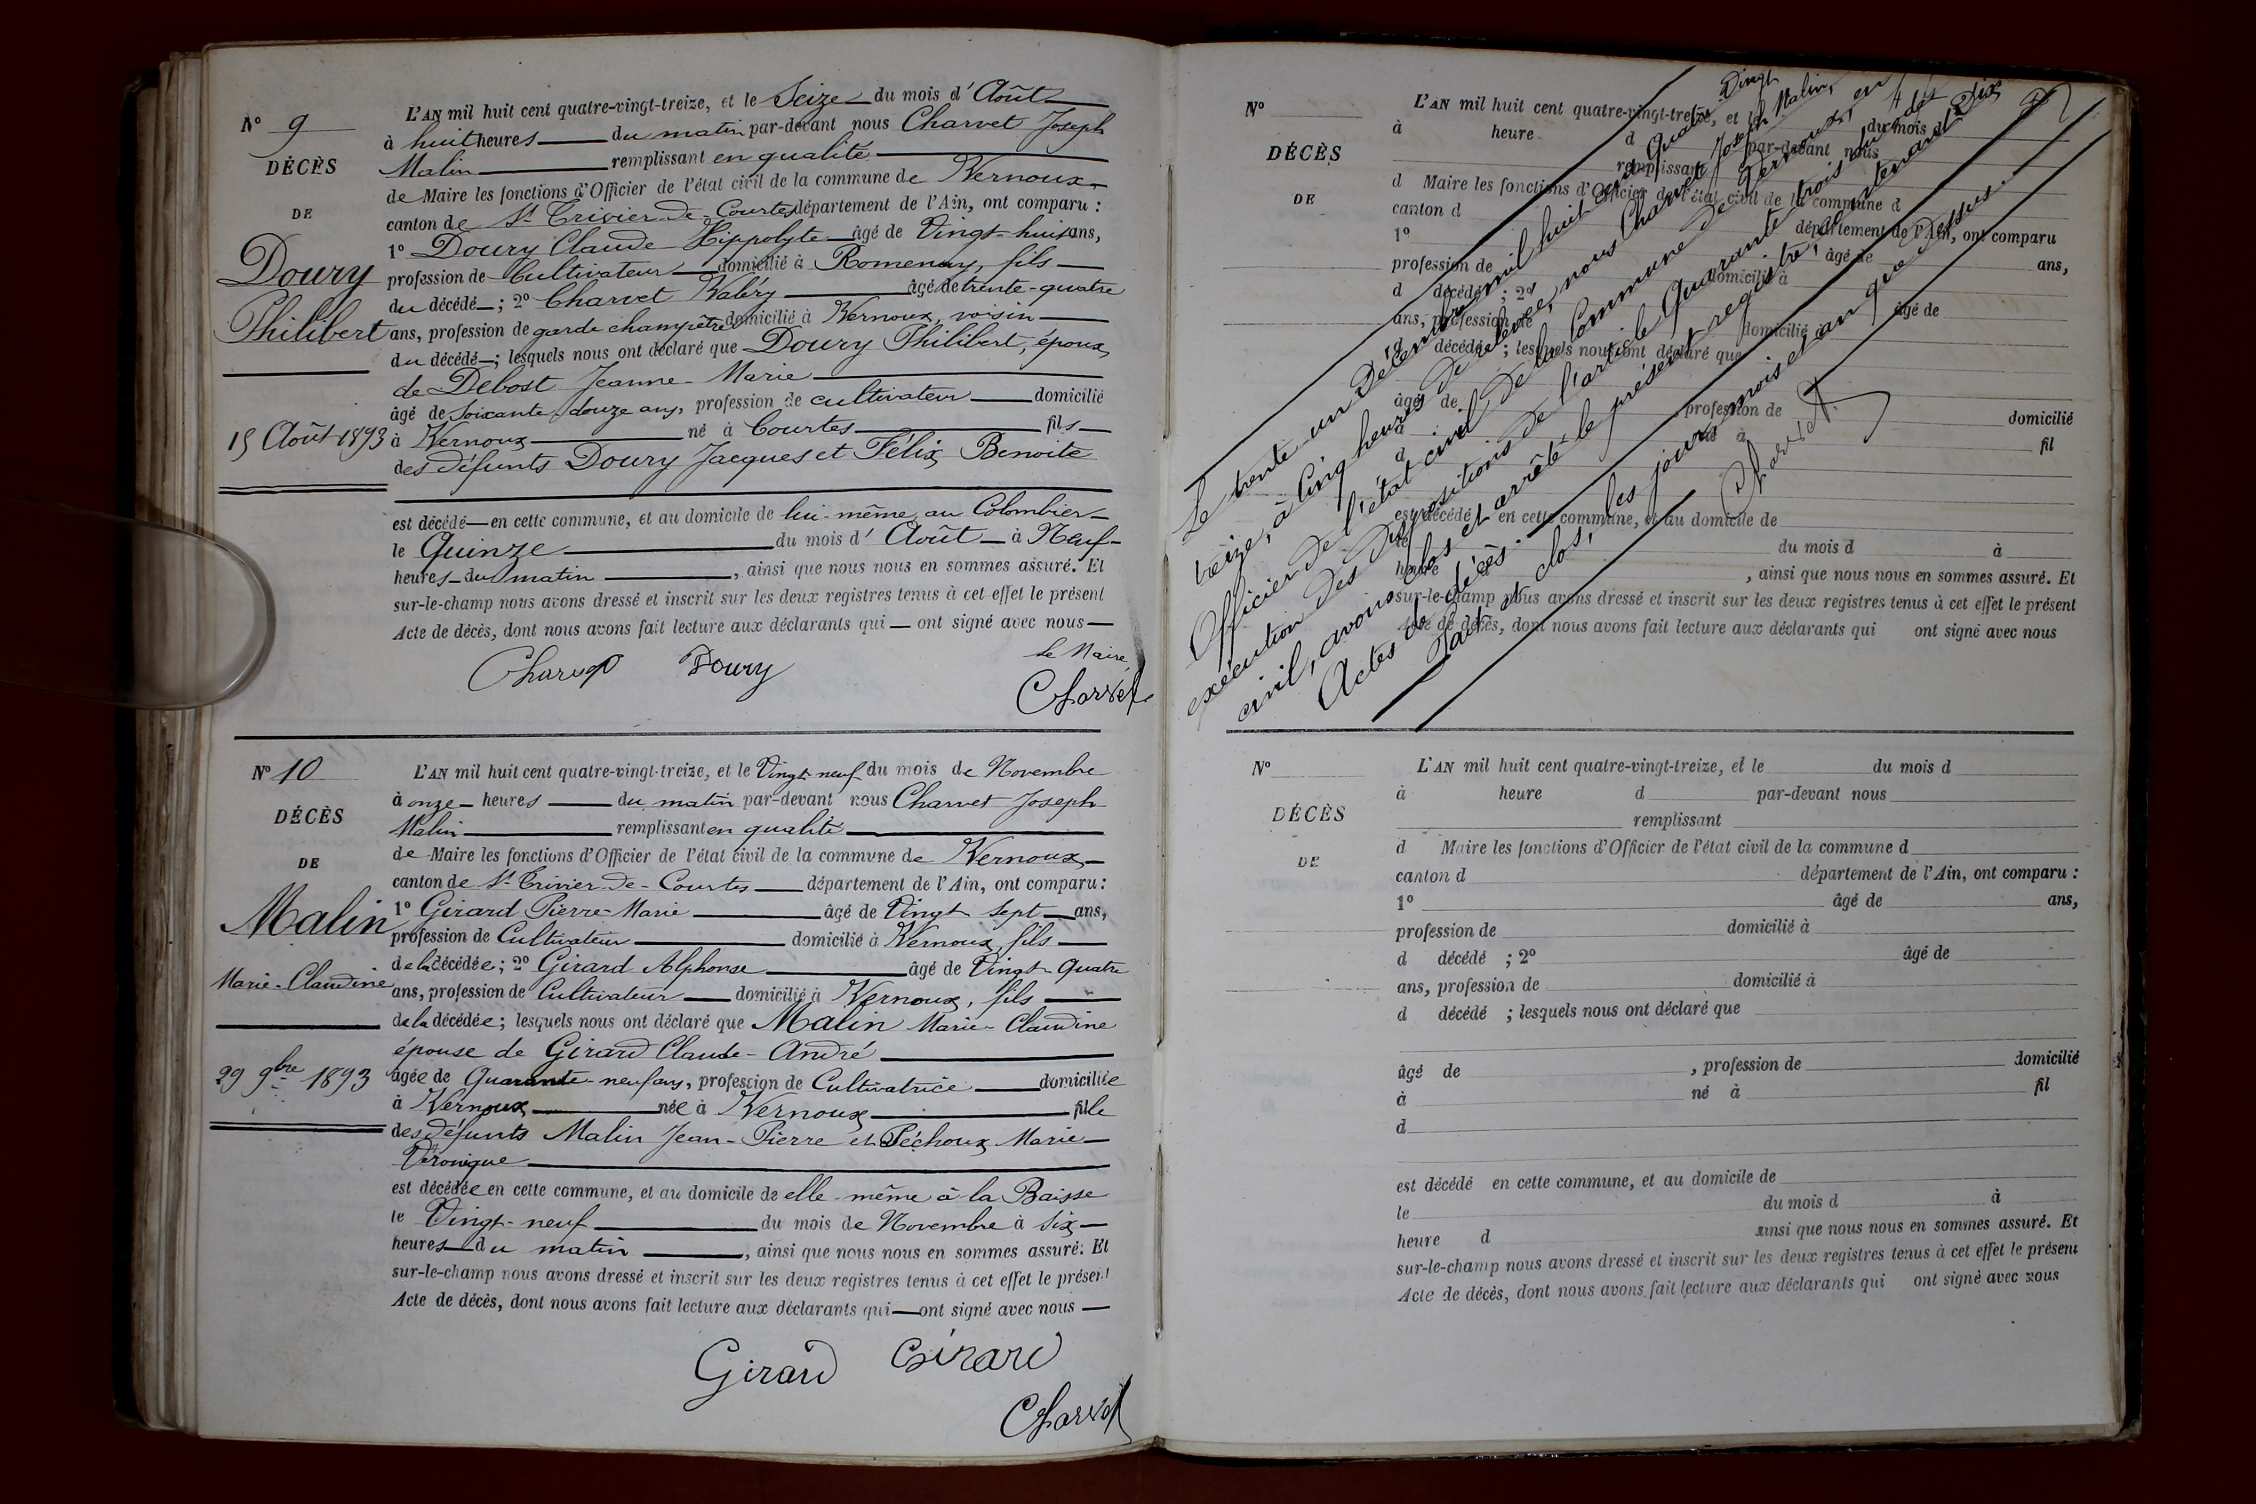 N° 9
DÉCÈS
DE
Doury
Philibert
15 Août 1893
L'AN mil huit cent quatre-vingt-treize, et le Seize du mois d'Août
à huit heures du matin par-devant nous Charvet Joseph
Malin remplissant en qualité
de Maire les fonctions d'Officier de l'état civil de la commune de Vernoux
canton de St Trivier-de-Courtes département de l'Ain, ont comparu :
1° Doury Claude Hippolyte âgé de Vingt-huit ans,
profession de Cultivateur domicilié à Romenay, fils
du décédé ; 2° Charvet Valéry âgé de trente-quatre
ans, profession de garde champêtre domicilié à Vernoux, voisin
du décédé ; lesquels nous ont déclaré que Doury Philibert, époux
de Debost Jeanne-Marie
âgé de soixante-douze ans, profession de cultivateur domicilié
à Vernoux né à Courtes fils
des défunts Doury Jacques et Félix Benoite
est décédé en cette commune, et au domicile de lui-même au Colombier
le Quinze du mois d'Août à Neuf
heures du matin, ainsi que nous nous en sommes assuré. Et
sur-le-champ nous avons dressé et inscrit sur les deux registres tenus à cet effet le présent
Acte de décès, dont nous avons fait lecture aux déclarants qui ont signé avec nous
le Maire,
Charvet Doury
Charvet
N° 10
DÉCÈS
DE
Malin
Marie-Claudine
29 9bre 1893
L'AN mil huit cent quatre-vingt-treize, et le Vingt-neuf du mois de Novembre
à onze heures du matin par-devant nous Charvet Joseph
Malin remplissant en qualité
de Maire les fonctions d'Officier de l'état civil de la commune de Vernoux
canton de St-Trivier-de-Courtes département de l'Ain, ont comparu :
1° Girard Pierre-Marie âgé de Vingt sept ans,
profession de Cultivateur domicilié à Vernoux, fils
de la décédée ; 2° Girard Alphonse âgé de Vingt-Quatre
ans, profession de Cultivateur domicilié à Vernoux, fils
de la décédée ; lesquels nous ont déclaré que Malin Marie-Claudine
épouse de Girard Claude-André
âgée de Quarante-neuf ans, profession de Cultivatrice domiciliée
à Vernoux née à Vernoux fille
des défunts Malin Jean-Pierre et Péchoux Marie
Véronique
est décédée en cette commune, et au domicile de elle-même à la Baisse
le Vingt-neuf du mois de Novembre à Six
heures du matin, ainsi que nous nous en sommes assuré. Et
sur-le-champ nous avons dressé et inscrit sur les deux registres tenus à cet effet le présent
Acte de décès, dont nous avons fait lecture aux déclarants qui ont signé avec nous
Girard Girard
Charvet
N°
DÉCÈS
DE
L'AN mil huit cent quatre-vingt-treize, et le du mois d
à heure d par-devant nous
remplissant
d Maire les fonctions d'Officier de l'état civil de la commune d
canton d département de l'Ain, ont comparu
1° âgé de ans,
profession de domicilié à
d décédé ; 2° âgé de
ans, profession de domicilié à
d décédé ; lesquels nous ont déclaré que
âgé de profession de domicilié
à né à fil
d
est décédé en cette commune, et au domicile de
le du mois d à
heure d, ainsi que nous nous en sommes assuré. Et
sur-le-champ nous avons dressé et inscrit sur les deux registres tenus à cet effet le présent
Acte de décès, dont nous avons fait lecture aux déclarants qui ont signé avec nous
Le trente-un Décembre mil huit cent Quatre-Vingt
treize, à Cinq heures de relevée, nous Charvet Joseph Malin,
Officier de l'état civil de la Commune de Vernoux, en
exécution des dispositions de l'article Quarante trois du Code
civil, avons clos et arrêté le présent registre, contenant Dix
Actes de décès.
Fait et clos, les jour, mois et an que dessus.
Charvet
N°
DÉCÈS
DE
L'AN mil huit cent quatre-vingt-treize, et le du mois d
à heure d par-devant nous
remplissant
d Maire les fonctions d'Officier de l'état civil de la commune d
canton d département de l'Ain, ont comparu :
1° âgé de ans,
profession de domicilié à
d décédé ; 2° âgé de
ans, profession de domicilié à
d décédé ; lesquels nous ont déclaré que
âgé de , profession de domicilié
à né à fil
d
est décédé en cette commune, et au domicile de
le du mois d à
heure d ainsi que nous nous en sommes assuré. Et
sur-le-champ nous avons dressé et inscrit sur les deux registres tenus à cet effet le présent
Acte de décès, dont nous avons fait lecture aux déclarants qui ont signé avec nous